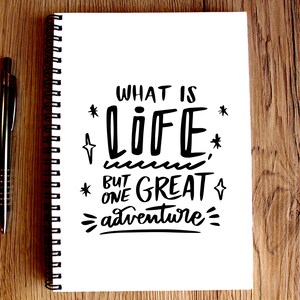 WHAT IS
LIFE,
BUT
ONE GREAT
adventure